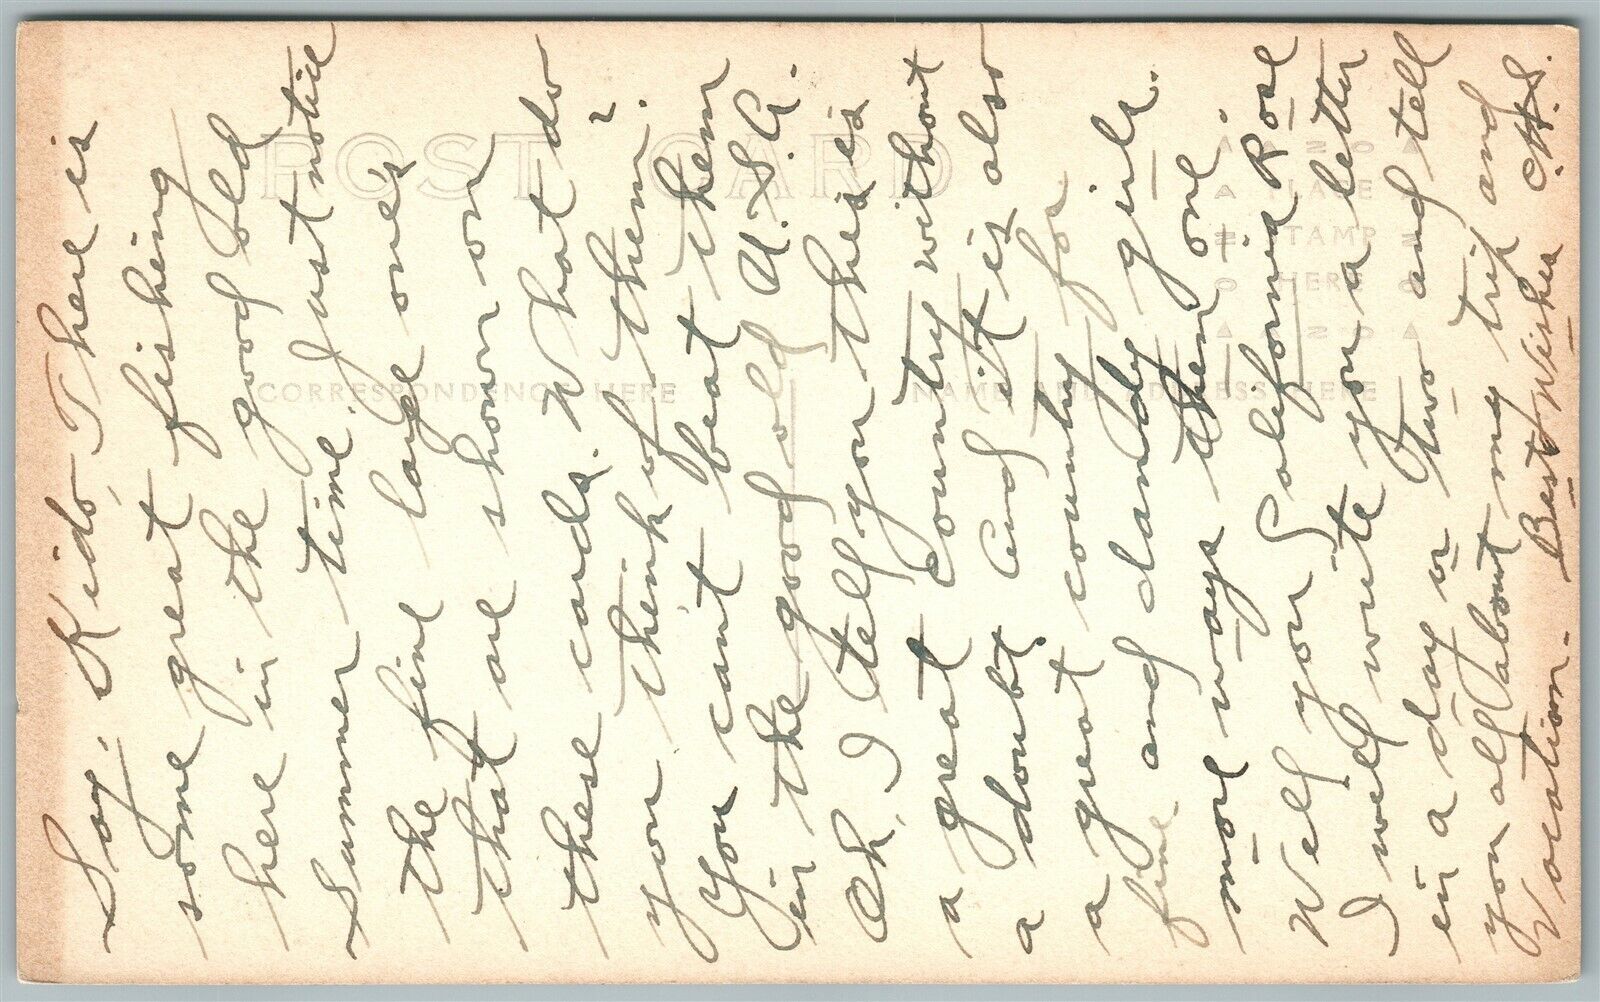 Say, Kido, There is
some great fishing
here in the good old
Summer time. Just notice
the fine large one's
that are shown on
these cards. What do
you think of them?
You cant beat them
in the good old U.S.A.
Oh, I tell you this is
a great country without
a doubt. And it is also
a great country for
fine and dandy girls.
more ways then one
Well your California Rose
I will write you a letter
in a day or two and tell
you all about my trip and
Vocation. Best Wishes C.H.S.
POST CARD
CORRESPONDENCE HERE
NAME AND ADDRESS HERE
PLACE
STAMP
HERE